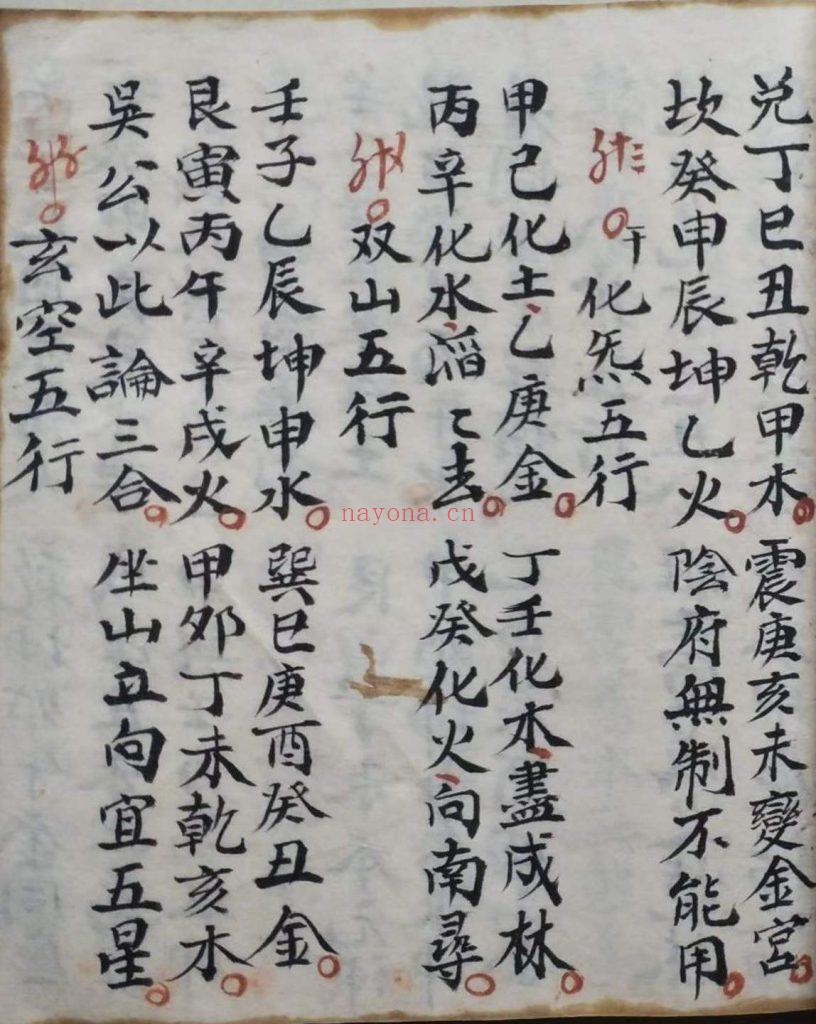 兑丁巳丑乾甲木。震庚亥未變金宮。
坎癸申辰坤乙火。陰府無制不能用。
干化炁五行
甲己化土、乙庚金。丁壬化木、盡成林。
丙辛化水、滔〻去。戊癸化火、向南尋。
双山五行
壬子乙辰坤申水。巽巳庚酉癸丑金。
艮寅丙午辛戌火。甲卯丁未乾亥木。
吳公以此論三合。坐山立向宜五星。
玄空五行
nayona.cn